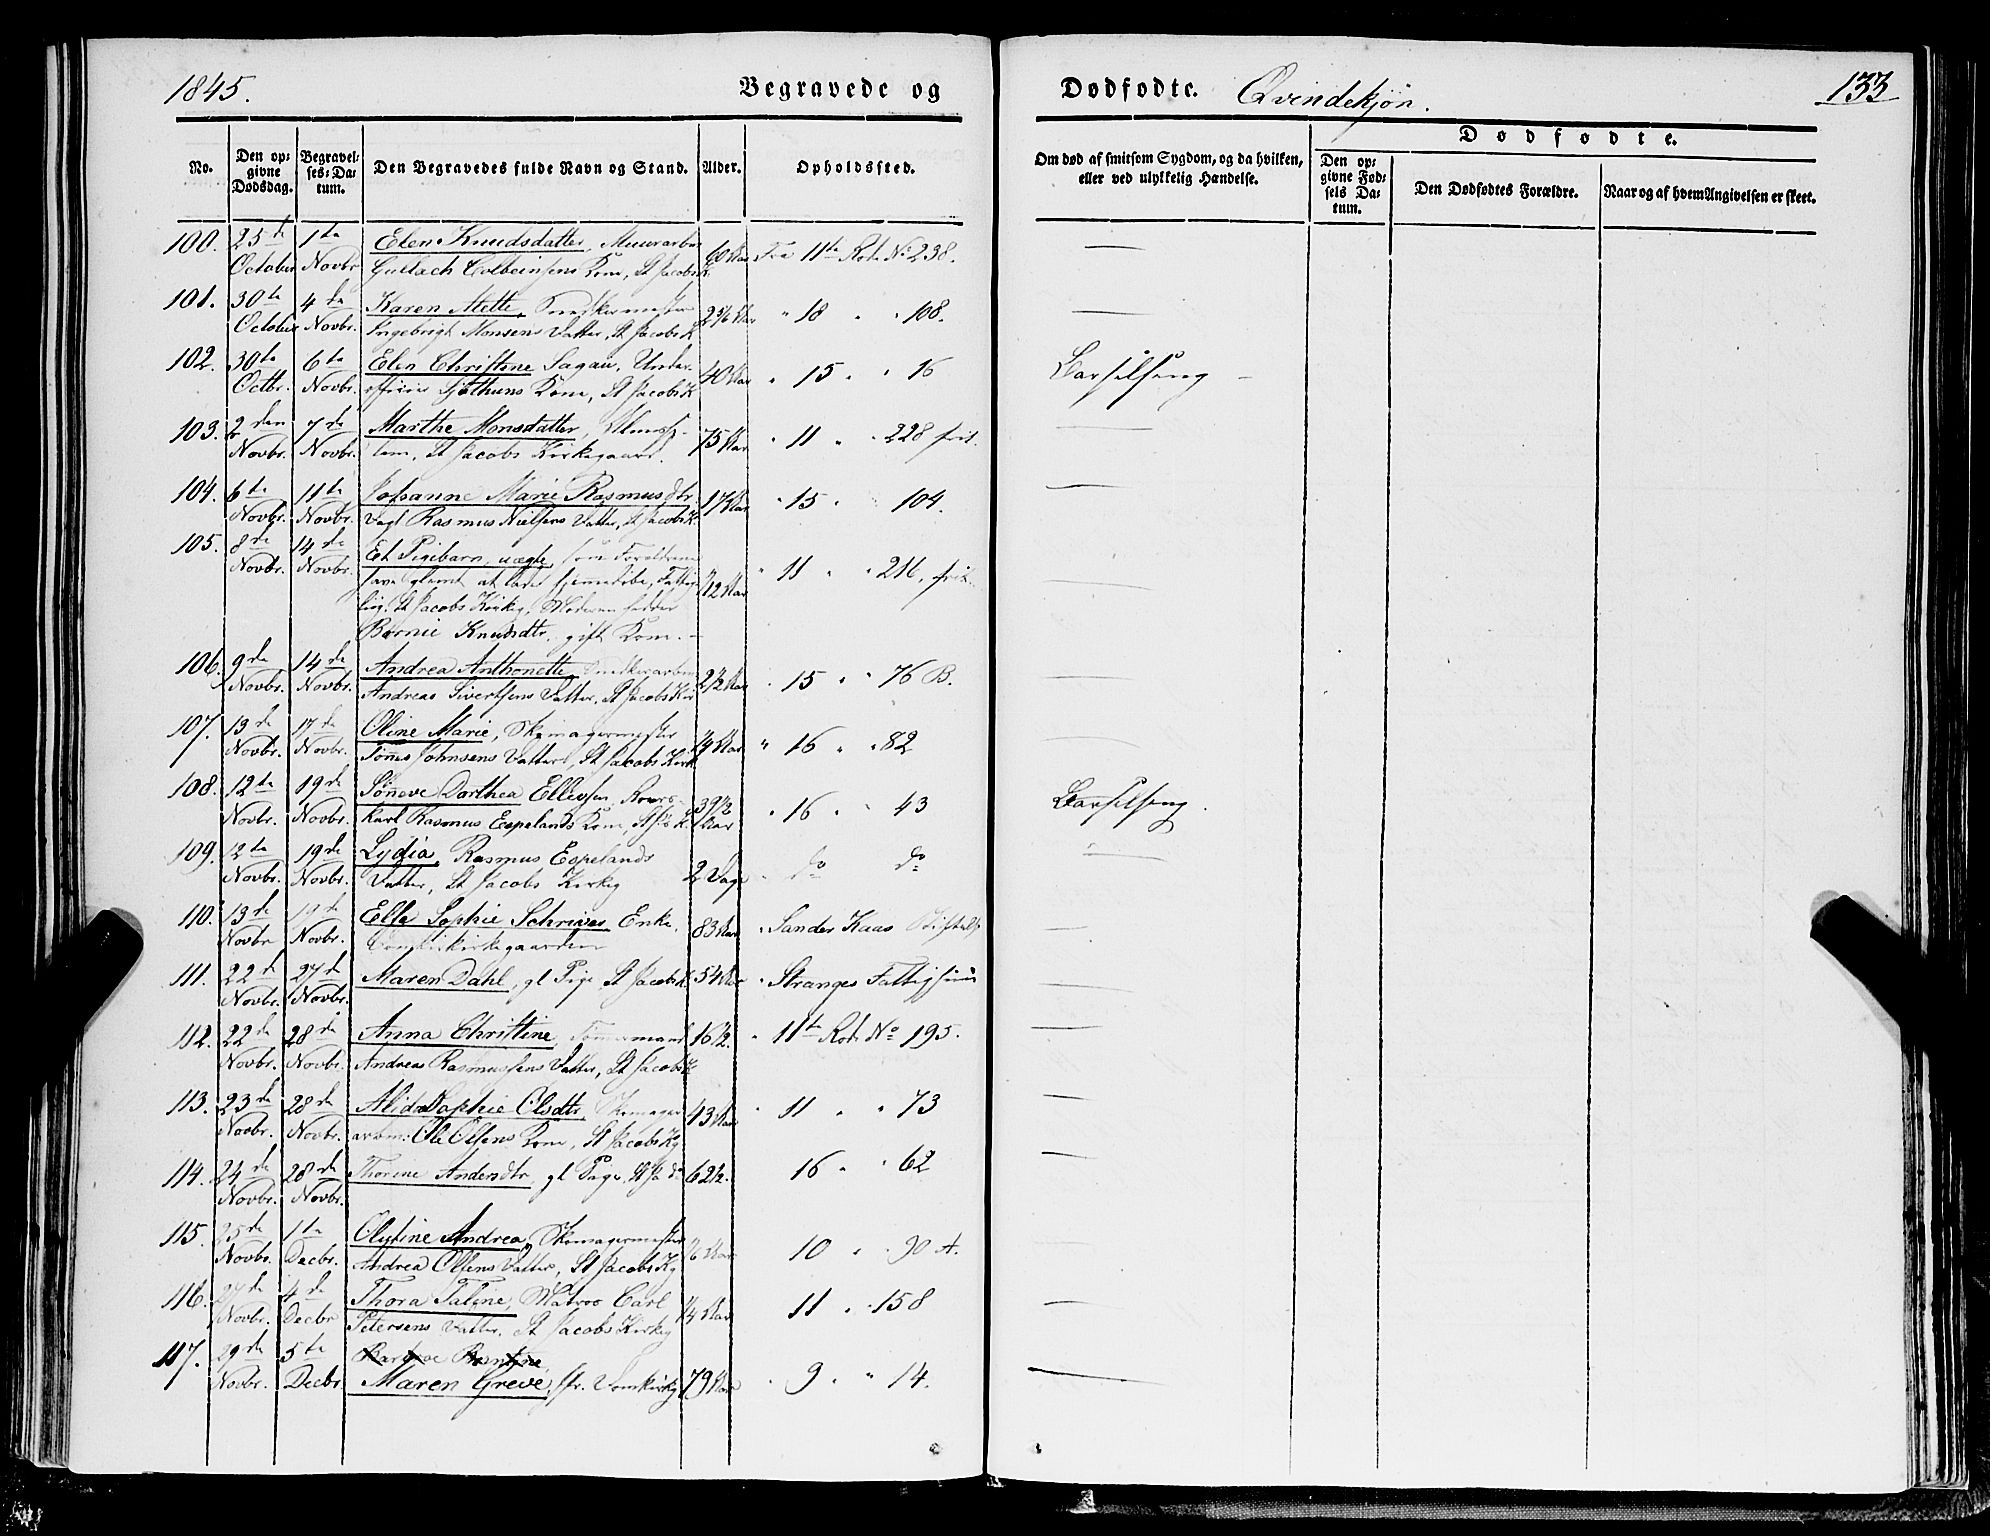 1845.
Begravede og
Dødfødte. Qvindekjön.
133
No.
Den opgivne Dødsdag.
Begravelses-Datum.
Den Begravedes fulde Navn og Stand.
Alder.
Opholdssted.
Om død af smitsom Sygdom, og da hvilken, eller ved ulykkelig Hændelse.
Dødfødte.
Den opgivne Fødsels Datum.
Den Dødfødtes Forældre.
Naar og af hvem Angivelsen er skeet.
100. 25de 1te Elen Knudsdatter, Muurarb 11te Rode No 238.
October Novbr Kone, St Jacobs K.
101. 30te 4de Karen Mette, Snedkermester 18 " " 108.
October Novbr. Ingebrigt Monsens Datter, St Jacobs K
102. 30te 6te Elen Christine Sagau, Under- 40 Aar " 15 " " 16 Barselseng
Octbr. Novbr. Kone, St Jacobs K
103. 2den 7de Marthe Monsdatter, 75 Aar " 11 " " 228 frit.
Novbr. Novbr. St Jacobs Kirkegaard.
104. 6te 11te Johanne Marie Rasmusdtr " 15 " 104.
Novbr. Novbr. Vægt Rasmus Nielsens Datter, St Jacobs K
105. 8de 14de Et Pigebarn, uægte, som Forældrene " 11 " " 216, frit.
Novbr. Novbr. have glemt at lade hjemmedøbe, 1/12 Aar
St Jacobs Kirkeg. Moderen hedder
Bernie Knudsdtr. gift Kone.
106. 9de 14de Andrea Anthonette, Snedkerarb 2 1/2 Aar " 15 " " 76 B.
Novbr. Novbr. Andreas Sivertsens Datter, St Jacobs Kir
107. 13de 17de Oline Marie, Skomagermester 1/4 Aar " 16 " " 82
Novbr. Novbr. Tönnes Johnsens Datter, St Jacobs Kirk
108. 12te 19de Sönneve Dorthea Ellevsen, 39 1/2 Aar " 16 " 43 Barselseng.
Novbr. Novbr. Karl Rasmus Espelands Kone,
109. 12te 19de Lydia, Rasmus Espelands 2 Dage " do do
Novbr. Novbr. Datter, St Jacobs Kirkeg
110. 13de 19de Else Sophie Enke, 83 Aar " Sander Kaas
Novbr Novbr. Domkirkegaarden
111. 22de 27de Maren Dahl, gl Pige St Jacobs K 54 Aar " Stranges Fattighuus
Novbr. Novbr.
112. 22de 28de Anna Christine, Tömmermand 16 1/2. " 11te Rode No 195.
Novbr. Novbr. Andreas Rasmussens Datter, St Jacobs K
113. 23de 28de Alida Sophie Olsdtr, Skomager 43 Aar " 11 " " 73
Novbr. Novbr. arbm: Ole Olsens Kone, St Jacobs Kg
114. 24de 28de Thorine Andersdtr, gl Pige, St Ja do 62 1/2. 16 " " 62
Novbr. Novbr.
115. 25de 1te Olufine Andrea, Skomagermester 1/6 Aar 10 " " 90 A.
Novbr. Decbr. Andrea Olsens Datter, St Jacobs Kg
116. 27de 4de Thora Taline, Matros Carl 1/4 Aar 11 " " 158
Novbr. Decbr Petersens Datter, St Jacobs Kirkeg
117. 29de 5te
Novbr. Decbr Maren Greve, fr. Domkirkeg 79 Aar " 9 " " 14.